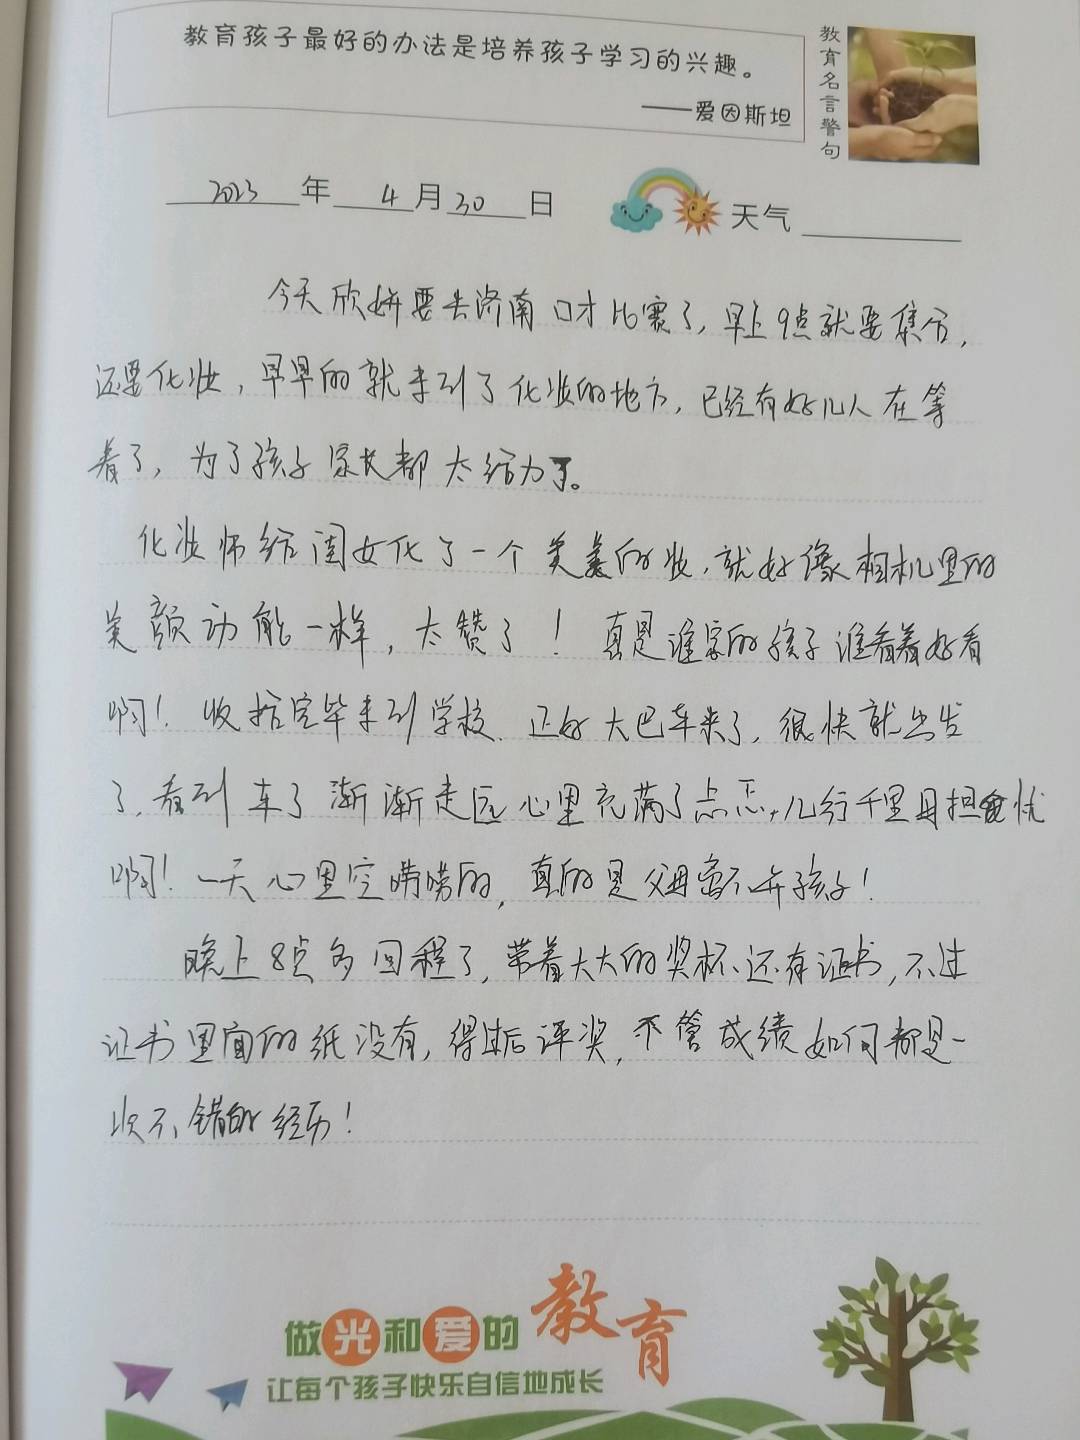 教育孩子最好的办法是培养孩子学习的兴趣。
——爱因斯坦
教育名言警句
2023年4月30日 天气
今天欣妍要去济南口才比赛了,早上9点就要集合,
还要化妆,早早的就来到了化妆的地方,已经有好几人在等
着了,为了孩子家长都太给力了。
化妆师给闺女化了一个美美的妆,就好像相机里的
美颜功能一样,太赞了!真是谁家的孩子谁看着好看
啊!收拾完毕来到学校、正好大巴车来了,很快就出发
了,看到车子渐渐走远心里充满了忐忑,儿行千里母担忧
啊!一天心里空唠唠的,真的是父母离不开孩子!
晚上8点多回程了,带着大大的奖杯、还有证书,不过
证书里面的纸没有,得过后评奖,不管成绩如何都是一
次不错的经历!
做光和爱的教育
让每个孩子快乐自信地成长